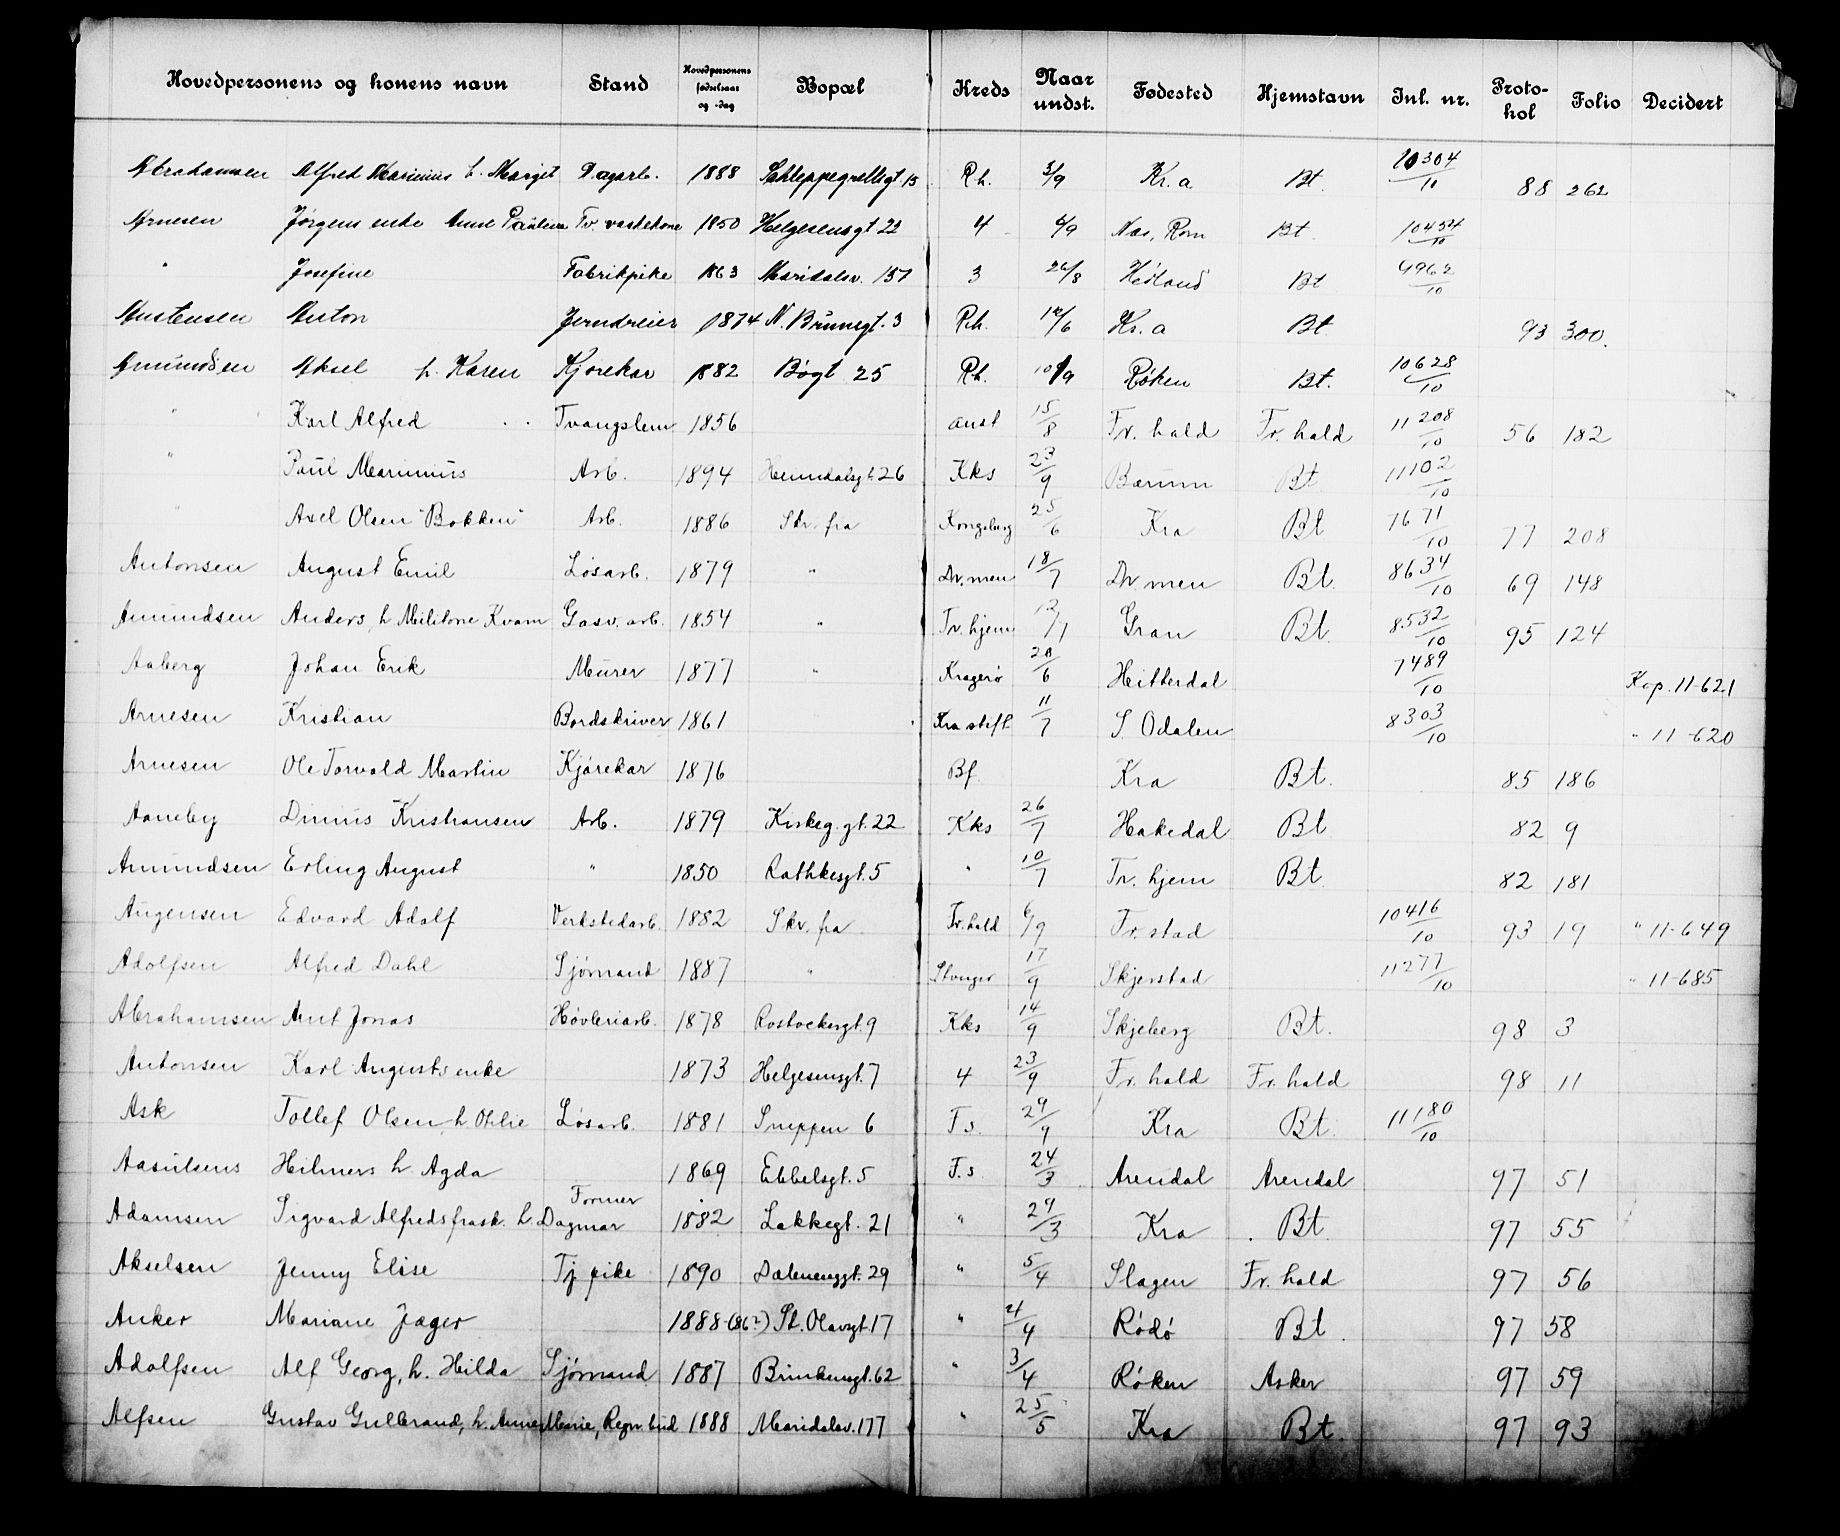 Hovedpersonens og konens navn Stand Hovedpersonens fødselsaar og -dag Bopæl Kreds Naar undst. Fødested Hjemstavn Inl. nr. Proto-kol Folio Decidert
Abrahamsen Alfred Marinius h. Margit Dagarb. 1888 Schleppegrellsgt 15 Rh. 3/9 Kr.a Bt. 10304/10 88 262
Arnesen Jørgens enke Anne Pauline Tv. vaskekone 1850 Helgesensgt 22 4 6/9 Næs, Rom Bt. 10454/10
" Josefine Fabrikpike 1863 Maridalsv. 137 3 26/8 Høland Bt 9962/10
Austensen Anton Jerndreier 1874 N. Brunsgt. 3 Rh. 14/6 Kr.a Bt. 93 300.
Amundsen Aksel h. Karen Kjørekar 1882 Bøgt 25 Rh. 10/9 Røken Bt. 10628/10
" Karl Alfred Tvangslem 1856 anst 15/8 Fr. hald Fr. hald 11208/10 56 182
" Paul Marinius Arb. 1894 Heimdalsgt. 26 Kks 23/9 Bærum Bt 11102/10
" Axel Olsen "Bokken" Arb. 1886 Skr. fra Kongsberg 25/6 Kra Bt 7671/10 77 208
Antonsen August Emil Løsarb. 1879 " Dr.men 18/7 Dr men Bt. 8634/10 69 148
Amundsen Anders, h Militone Kvam Gasv. arb. 1854 " Tr. hjem 12/7 Gran Bt. 8532/10 95 124
Aaberg Johan Erik Murer 1877 " Kragerø 20/6 Hitterdal 7489/10 Kop. 11-621
Arnesen Kristian Bordskriver 1861 Kra stift 11/7 S. Odalen 8303/10 " 11-620
Arnesen Ole Torvald Martin Kjørekar 1876 Bf. Kra Bt. 85 186
Aaneby Dinius Kristiansen Arb. 1879 Kirkeg. gt. 22 Kks 26/7 Hakedal Bt 82 9
Amundsen Erling August " 1850 Rathkesgt. 5 " 10/7 Tr. hjem Bt. 82 181
Augensen Edvard Adolf Verkstedarb. 1882 Skr. fra Fr. hald 6/9 Fr. stad 10416/10 93 19 " 11-649
Adolfsen Alfred Dahl Sjømand 1887 " Stvnger 17/9 Skjerstad 11277/10 " 11-685
Abrahamsen Ant Jonas Høvleriarb. 1878 Rostockergt. 9 Kks 14/9 Skjeberg Bt. 98 3
Antonsen Karl Augusts enke 1873 Helgesensgt. 7 4 23/9 Fr. hald Fr. hald 98 11
Ask Tollef Olsen h. Otilie Løsarb. 1881 Snippen 6 F s. 29/9 Kra Bt. 11180/10
Aasulsens Hilmers h. Agda 1869 Ebbelsgt. 5 F. s 24/3 Arendal Arendal 97 51
Adamsen Sigvard Alfreds frask. h. Dagmar Former 1882 Lakkegt. 21 " 29/3 Kra Bt. 97 55
Akselsen Jenny Elise Tj pike 1890 Dælenenggt. 29 " 5/4 Slagen Fr. hald 97 56
Anker Mariane Jæger 1888 (86?) St. Olavsgt. 17 " 4/4 Rødø Bt. 97 58
Adolfsen Alf Georg, h. Hilda Sjømand 1887 Brinkensgt. 62 " 3/4 Røken Asker 97 59
Alfsen Gustav Gulbrand, h. Anne Marie, Regn. bud 1888 Maridalsv. 177 " 25/5 Kra Bt. 97 93